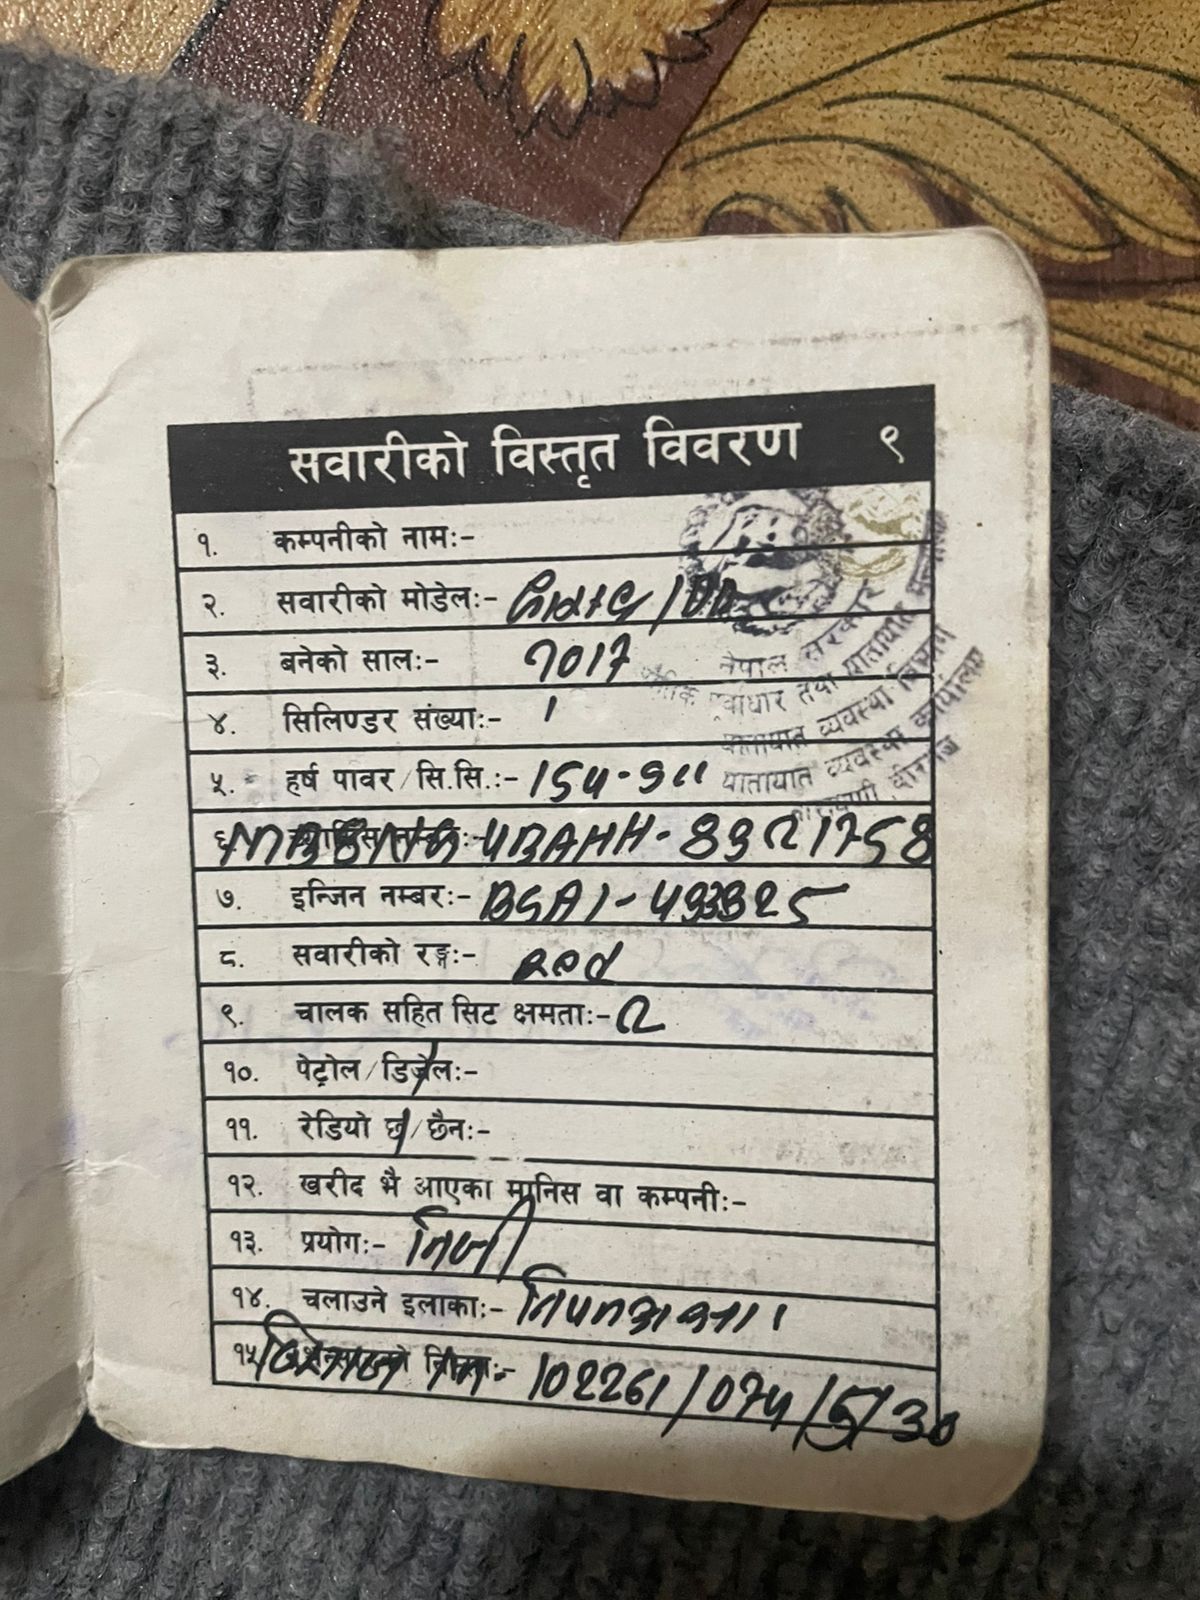 सवारीको विस्तृत विवरण ९
१. कम्पनीको नामः-
२. सवारीको मोडेलः-
३. बनेको सालः- 2017
४. सिलिण्डर संख्याः- 1
५. हर्ष पावर/सि.सि.ः-
६. UBAHH-
७. इन्जिन नम्बरः- BGA1-493325
८. सवारीको रङ्गः- Red
९. चालक सहित सिट क्षमताः- 2
१०. पेट्रोल/डिजेलः-
११. रेडियो छ/छैनः-
१२. खरीद भै आएका मानिस वा कम्पनीः-
१३. प्रयोगः- निजी
१४. चलाउने इलाकाः-
१५. 102261/074/5/30
नेपाल सरकार
भौतिक पूर्वाधार तथा यातायात
यातायात व्यवस्था विभाग
यातायात व्यवस्था कार्यालय